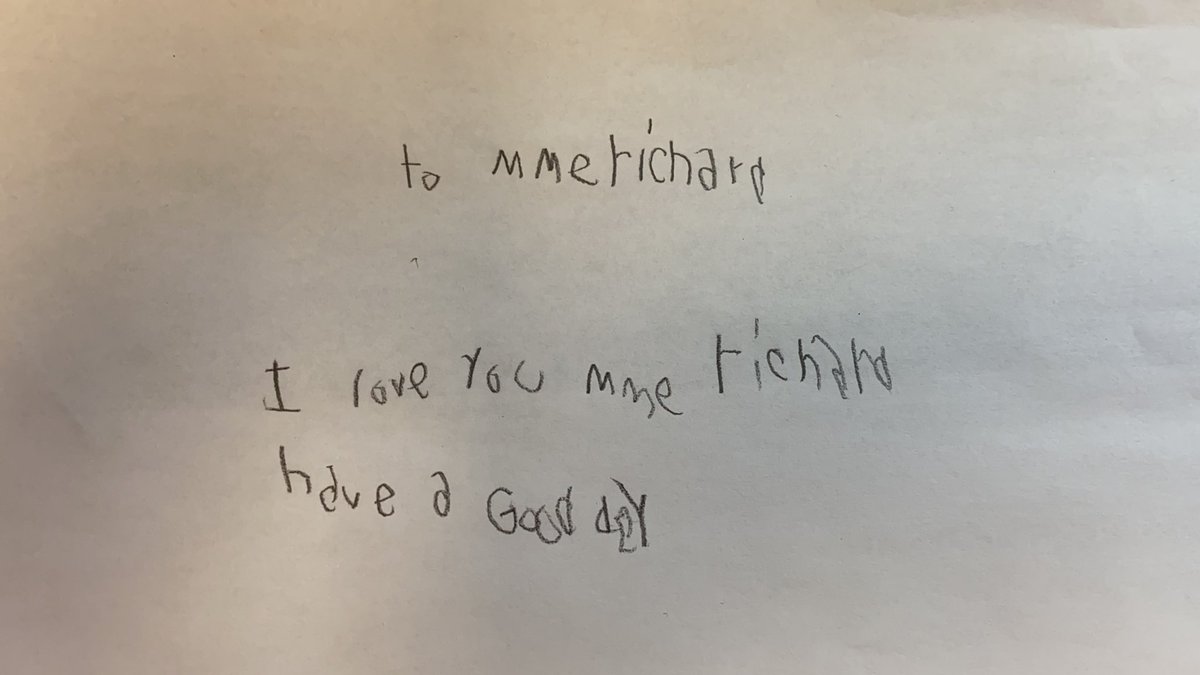 to mme richard
I love You mme richard
have a Good day